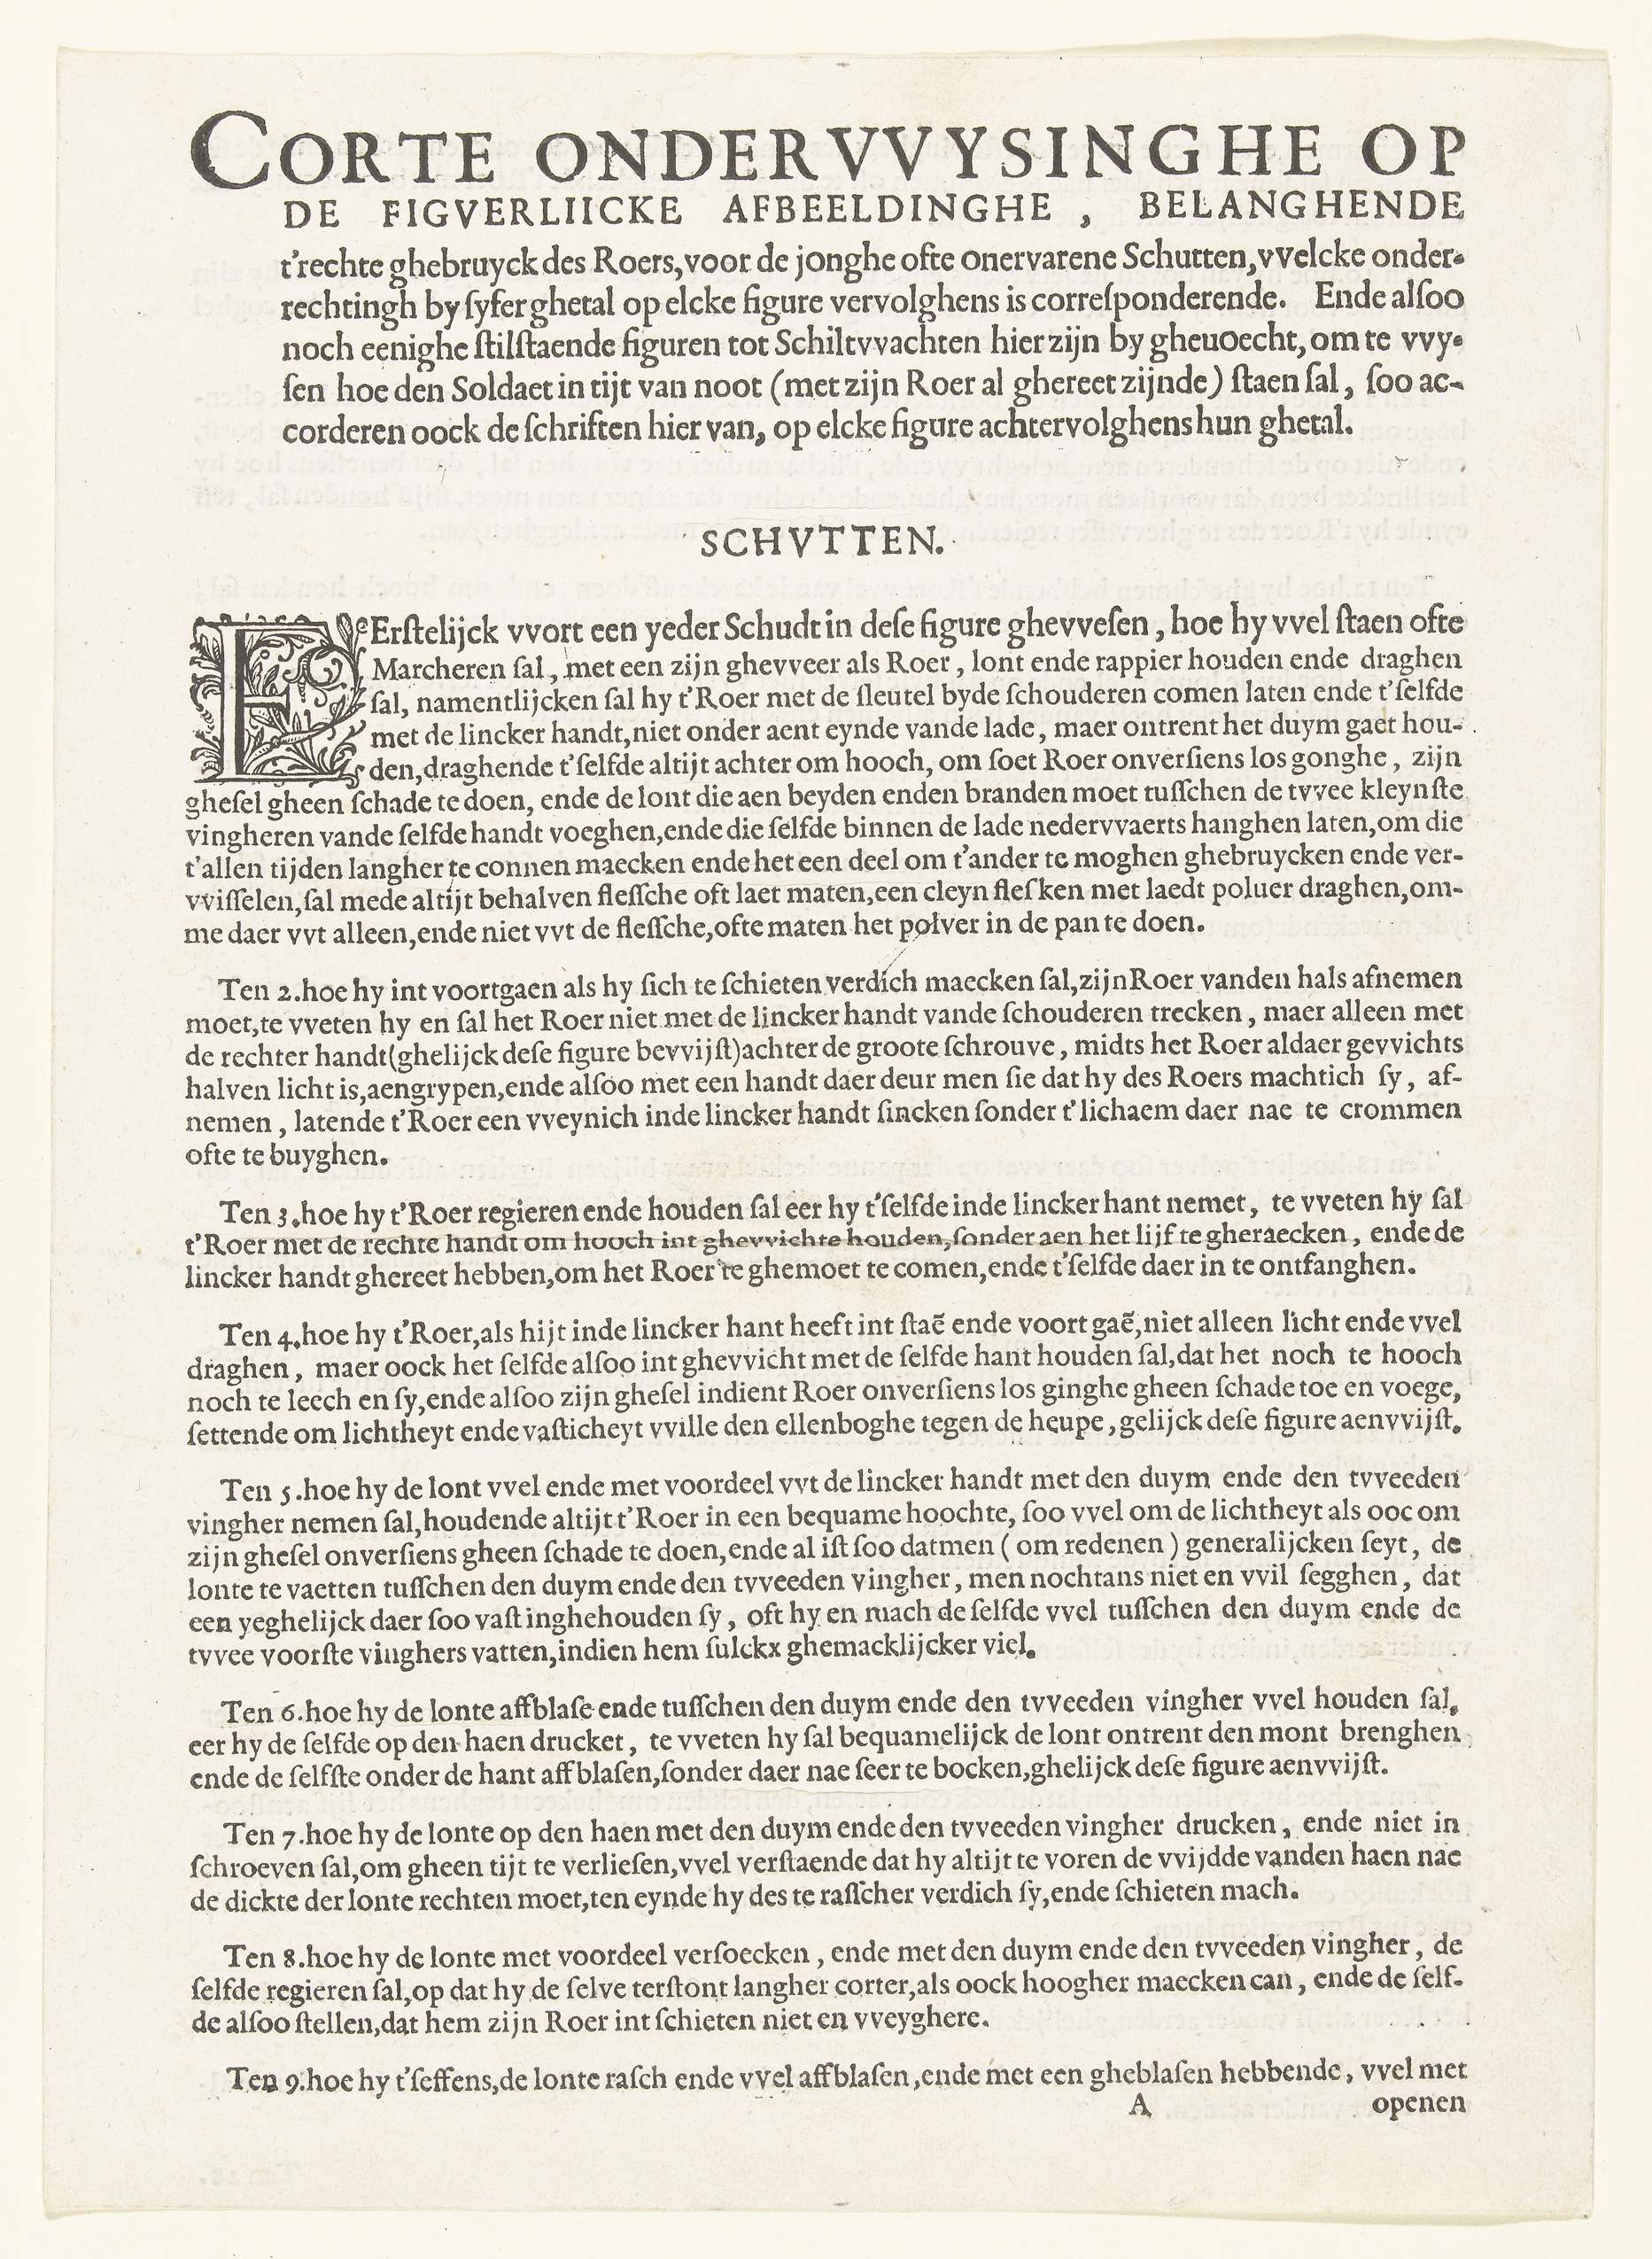 CORTE ONDERVVYSINGHE OP
DE FIGVERLIICKE AFBEELDINGHE, BELANGHENDE
t'rechte ghebruyck des Roers, voor de jonghe ofte onervarene Schutten, vvelcke onder-
rechtingh by ſyfer ghetal op elcke figure vervolghens is correſponderende. Ende alſoo
noch eenighe ſtilſtaende figuren tot Schiltvvachten hier zijn by gheuoecht, om te vvy-
ſen hoe den Soldaet in tijt van noot (met zijn Roer al ghereet zijnde) ſtaen ſal, ſoo ac-
corderen oock de ſchriften hier van, op elcke figure achtervolghens hun ghetal.
SCHVTTEN.
EErſtelijck vvort een yeder Schudt in deſe figure ghevveſen, hoe hy vvel ſtaen ofte
Marcheren ſal, met een zijn ghevveer als Roer, lont ende rappier houden ende draghen
ſal, namentlijcken ſal hy t'Roer met de ſleutel byde ſchouderen comen laten ende t'ſelfde
met de lincker handt, niet onder aent eynde vande lade, maer ontrent het duym gaet hou-
den, draghende t'ſelfde altijt achter om hooch, om ſoet Roer onverſiens los gonghe, zijn
gheſel gheen ſchade te doen, ende de lont die aen beyden enden branden moet tuſſchen de tvvee kleynſte
vingheren vande ſelfde handt voeghen, ende die ſelfde binnen de lade nedervvaerts hanghen laten, om die
t'allen tijden langher te connen maecken ende het een deel om t'ander te moghen ghebruycken ende ver-
vviſſelen, ſal mede altijt behalven fleſſche oft laet maten, een cleyn fleſken met laedt poluer draghen, om-
me daer vvt alleen, ende niet vvt de fleſſche, ofte maten het polver in de pan te doen.
Ten 2. hoe hy int voortgaen als hy ſich te ſchieten verdich maecken ſal, zijn Roer vanden hals afnemen
moet, te vveten hy en ſal het Roer niet met de lincker handt vande ſchouderen trecken, maer alleen met
de rechter handt (ghelijck deſe figure bevvijſt) achter de groote ſchrouve, midts het Roer aldaer gevvichts
halven licht is, aengrypen, ende alſoo met een handt daer deur men ſie dat hy des Roers machtich ſy, af-
nemen, latende t'Roer een vveynich inde lincker handt ſincken ſonder t'lichaem daer nae te crommen
ofte te buyghen.
Ten 3. hoe hy t'Roer regieren ende houden ſal eer hy t'ſelfde inde lincker hant nemet, te vveten hy ſal
t'Roer met de rechte handt om hooch int ghevvichte houden, ſonder aen het lijf te gheraecken, ende de
lincker handt ghereet hebben, om het Roer te ghemoet te comen, ende t'ſelfde daer in te ontfanghen.
Ten 4. hoe hy t'Roer, als hijt inde lincker hant heeft int ſtaẽ ende voort gaẽ, niet alleen licht ende vvel
draghen, maer oock het ſelfde alſoo int ghevvicht met de ſelfde hant houden ſal, dat het noch te hooch
noch te leech en ſy, ende alſoo zijn gheſel indient Roer onverſiens los ginghe gheen ſchade toe en voege,
ſettende om lichtheyt ende vaſticheyt vville den ellenboghe tegen de heupe, gelijck deſe figure aenvvijſt.
Ten 5. hoe hy de lont vvel ende met voordeel vvt de lincker handt met den duym ende den tvveeden
vingher nemen ſal, houdende altijt t'Roer in een bequame hoochte, ſoo vvel om de lichtheyt als ooc om
zijn gheſel onverſiens gheen ſchade te doen, ende al iſt ſoo datmen (om redenen) generalijcken ſeyt, de
lonte te vaetten tuſſchen den duym ende den tvveeden vingher, men nochtans niet en vvil ſegghen, dat
een yeghelijck daer ſoo vaſt inghehouden ſy, oft hy en mach de ſelfde vvel tuſſchen den duym ende de
tvvee voorſte vinghers vatten, indien hem ſulckx ghemacklijcker viel.
Ten 6. hoe hy de lonte affblaſe ende tuſſchen den duym ende den tvveeden vingher vvel houden ſal,
eer hy de ſelfde op den haen drucket, te vveten hy ſal bequamelijck de lont ontrent den mont brenghen
ende de ſelfſte onder de hant affblaſen, ſonder daer nae ſeer te bocken, ghelijck deſe figure aenvvijſt.
Ten 7. hoe hy de lonte op den haen met den duym ende den tvveeden vingher drucken, ende niet in
ſchroeven ſal, om gheen tijt te verlieſen, vvel verſtaende dat hy altijt te voren de vvijdde vanden haen nae
de dickte der lonte rechten moet, ten eynde hy des te raſſcher verdich ſy, ende ſchieten mach.
Ten 8. hoe hy de lonte met voordeel verſoecken, ende met den duym ende den tvveeden vingher, de
ſelfde regieren ſal, op dat hy de ſelve terſtont langher corter, als oock hoogher maecken can, ende de ſelf-
de alſoo ſtellen, dat hem zijn Roer int ſchieten niet en vveyghere.
Ten 9. hoe hy t'ſeffens, de lonte raſch ende vvel affblaſen, ende met een gheblaſen hebbende, vvel met
A openen